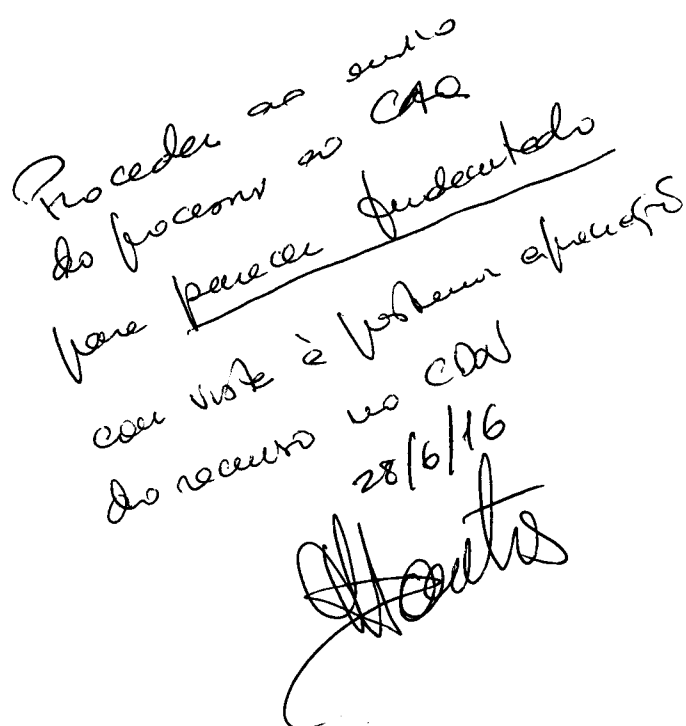 Proceder ao envio
do processo ao CAQ
para parecer fundamentado
com vista à posterior apreciação
do recurso no CDN
28/6/16